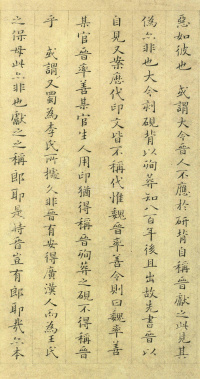 惡如彼也　或謂大令晉人不應於研背自稱晉獻之此見其
偽六非也大令刻硯背以殉葬知八百年後且出故先書晉以
自見又案歷代印文皆不稱代惟魏晉率善令則曰魏率善
某官晉率善某官生人用印猶得稱晉殉葬之硯不得稱晉
乎　或謂又蜀為李氏所據久非晉有安得廣漢人而為王氏
之保母此六非也獻之之稱郎耶是時晉豈有郎耶哉六本